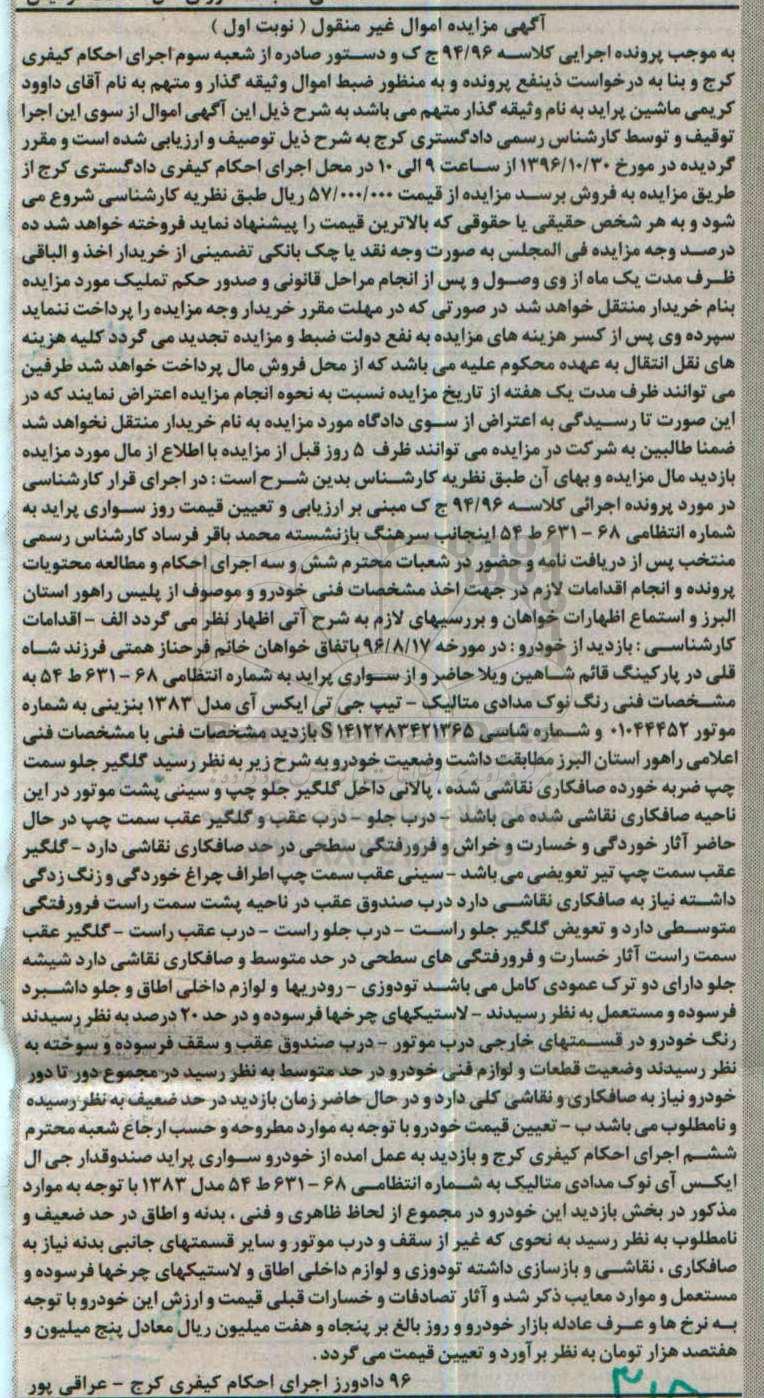 آگهی مزایده اموال غیر منقول ( نوبت اول )
به موجب پرونده اجرایی کلاسه ۹۴/۹۶ ج ک و دستور صادره از شعبه سوم اجرای احکام کیفری
کرج و بنا به درخواست ذینفع پرونده و به منظور ضبط اموال وثیقه گذار و متهم به نام آقای داوود
کریمی ماشین پراید به نام وثیقه گذار متهم می باشد به شرح ذیل این آگهی اموال از سوی این اجرا
توقیف و توسط کارشناس رسمی دادگستری کرج به شرح ذیل توصیف و ارزیابی شده است و مقرر
گردیده در مورخ ۱۳۹۶/۱۰/۳۰ از ساعت ۹ الی ۱۰ در محل اجرای احکام کیفری دادگستری کرج از
طریق مزایده به فروش برسد مزایده از قیمت ۵۷/۰۰۰/۰۰۰ ریال طبق نظریه کارشناسی شروع می
شود و به هر شخص حقیقی یا حقوقی که بالاترین قیمت را پیشنهاد نماید فروخته خواهد شد ده
درصد وجه مزایده فی المجلس به صورت وجه نقد یا چک بانکی تضمینی از خریدار اخذ و الباقی
ظرف مدت یک ماه از وی وصول و پس از انجام مراحل قانونی و صدور حکم تملیک مورد مزایده
بنام خریدار منتقل خواهد شد در صورتی که در مهلت مقرر خریدار وجه مزایده را پرداخت ننماید
سپرده وی پس از کسر هزینه های مزایده به نفع دولت ضبط و مزایده تجدید می گردد کلیه هزینه
های نقل انتقال به عهده محکوم علیه می باشد که از محل فروش مال پرداخت خواهد شد طرفین
می توانند ظرف مدت یک هفته از تاریخ مزایده نسبت به نحوه انجام مزایده اعتراض نمایند که در
این صورت تا رسیدگی به اعتراض از سوی دادگاه مورد مزایده به نام خریدار منتقل نخواهد شد
ضمنا طالبین به شرکت در مزایده می توانند ظرف ۵ روز قبل از مزایده با اطلاع از مال مورد مزایده
بازدید مال مزایده و بهای آن طبق نظریه کارشناس بدین شرح است : در اجرای قرار کارشناسی
در مورد پرونده اجرائی کلاسه ۹۴/۹۶ ج ک مبنی بر ارزیابی و تعیین قیمت روز سواری پراید به
شماره انتظامی ۶۸ - ۶۳۱ ط ۵۴ اینجانب سرهنگ بازنشسته محمد باقر فرساد کارشناس رسمی
منتخب پس از دریافت نامه و حضور در شعبات محترم شش و سه اجرای احکام و مطالعه محتویات
پرونده و انجام اقدامات لازم در جهت اخذ مشخصات فنی خودرو و موصوف از پلیس راهور استان
البرز و استماع اظهارات خواهان و بررسیهای لازم به شرح آتی اظهار نظر می گردد الف - اقدامات
کارشناسی : بازدید از خودرو : در مورخه ۹۶/۸/۱۷ باتفاق خواهان خانم فرحناز همتی فرزند شاه
قلی در پارکینگ قائم شاهین ویلا حاضر و از سواری پراید به شماره انتظامی ۶۸ - ۶۳۱ ط ۵۴ به
مشخصات فنی رنگ نوک مدادی متالیک - تیپ جی تی ایکس آی مدل ۱۳۸۳ بنزینی به شماره
موتور ۰۱۰۴۴۴۵۲ و شماره شاسی S۱۴۱۲۲۸۳۴۲۱۳۶۵ بازدید مشخصات فنی با مشخصات فنی
اعلامی راهور استان البرز مطابقت داشت وضعیت خودرو به شرح زیر به نظر رسید گلگیر جلو سمت
چپ ضربه خورده صافکاری نقاشی شده ، پالانی داخل گلگیر جلو چپ و سینی پشت موتور در این
ناحیه صافکاری نقاشی شده می باشد - درب جلو - درب عقب و گلگیر عقب سمت چپ در حال
حاضر آثار خوردگی و خسارت و خراش و فرورفتگی سطحی در حد صافکاری نقاشی دارد - گلگیر
عقب سمت چپ تیر تعویضی می باشد - سینی عقب سمت چپ اطراف چراغ خوردگی و زنگ زدگی
داشته نیاز به صافکاری نقاشی دارد درب صندوق عقب در ناحیه پشت سمت راست فرورفتگی
متوسطی دارد و تعویض گلگیر جلو راست - درب جلو راست - درب عقب راست - گلگیر عقب
سمت راست آثار خسارت و فرورفتگی های سطحی در حد متوسط و صافکاری نقاشی دارد شیشه
جلو دارای دو ترک عمودی کامل می باشد تودوزی - رودریها و لوازم داخلی اطاق و جلو داشبرد
فرسوده و مستعمل به نظر رسیدند - لاستیکهای چرخها فرسوده و در حد ۲۰ درصد به نظر رسیدند
رنگ خودرو در قسمتهای خارجی درب موتور - درب صندوق عقب و سقف فرسوده و سوخته به
نظر رسیدند وضعیت قطعات و لوازم فنی خودرو در حد متوسط به نظر رسید در مجموع دور تا دور
خودرو نیاز به صافکاری و نقاشی کلی دارد و در حال حاضر زمان بازدید در حد ضعیف به نظر رسیده
و نامطلوب می باشد ب - تعیین قیمت خودرو با توجه به موارد مطروحه و حسب ارجاع شعبه محترم
ششم اجرای احکام کیفری کرج و بازدید به عمل امده از خودرو سواری پراید صندوقدار جی ال
ایکس آی نوک مدادی متالیک به شماره انتظامی ۶۸ - ۶۳۱ ط ۵۴ مدل ۱۳۸۳ با توجه به موارد
مذکور در بخش بازدید این خودرو در مجموع از لحاظ ظاهری و فنی ، بدنه و اطاق در حد ضعیف و
نامطلوب به نظر رسید به نحوی که غیر از سقف و درب موتور و سایر قسمتهای جانبی بدنه نیاز به
صافکاری ، نقاشی و بازسازی داشته تودوزی و لوازم داخلی اطاق و لاستیکهای چرخها فرسوده و
مستعمل و موارد معایب ذکر شد و آثار تصادفات و خسارات قبلی قیمت و ارزش این خودرو با توجه
به نرخ ها و عرف عادله بازار خودرو و روز بالغ بر پنجاه و هفت میلیون ریال معادل پنج میلیون و
هفتصد هزار تومان به نظر برآورد و تعیین قیمت می گردد .
۹۶ دادورز اجرای احکام کیفری کرج - عراقی پور